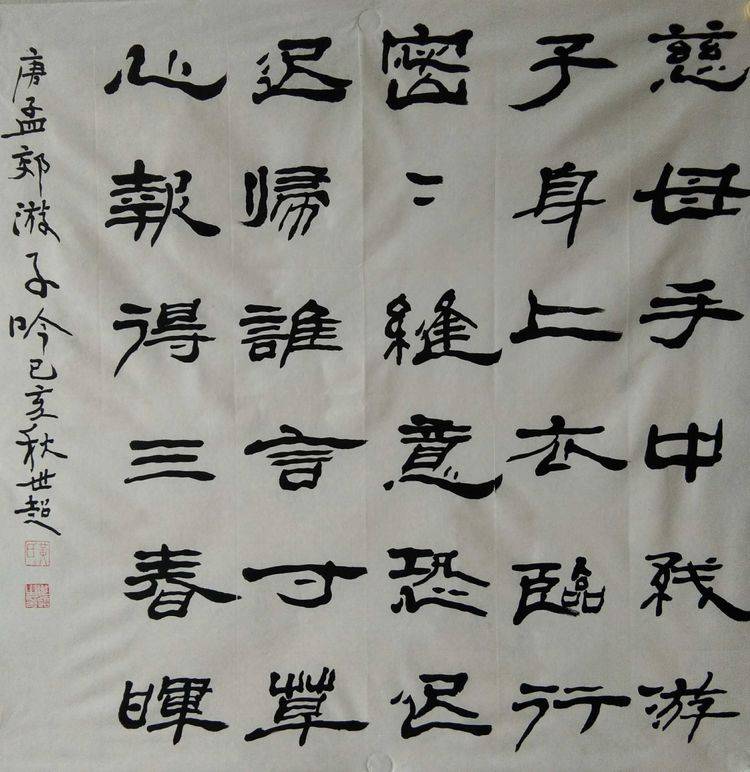 慈母手中线游
子身上衣臨行
密〻縫意恐迟
迟帰誰言寸草
心報得三春暉
唐孟郊游子吟己亥秋世超